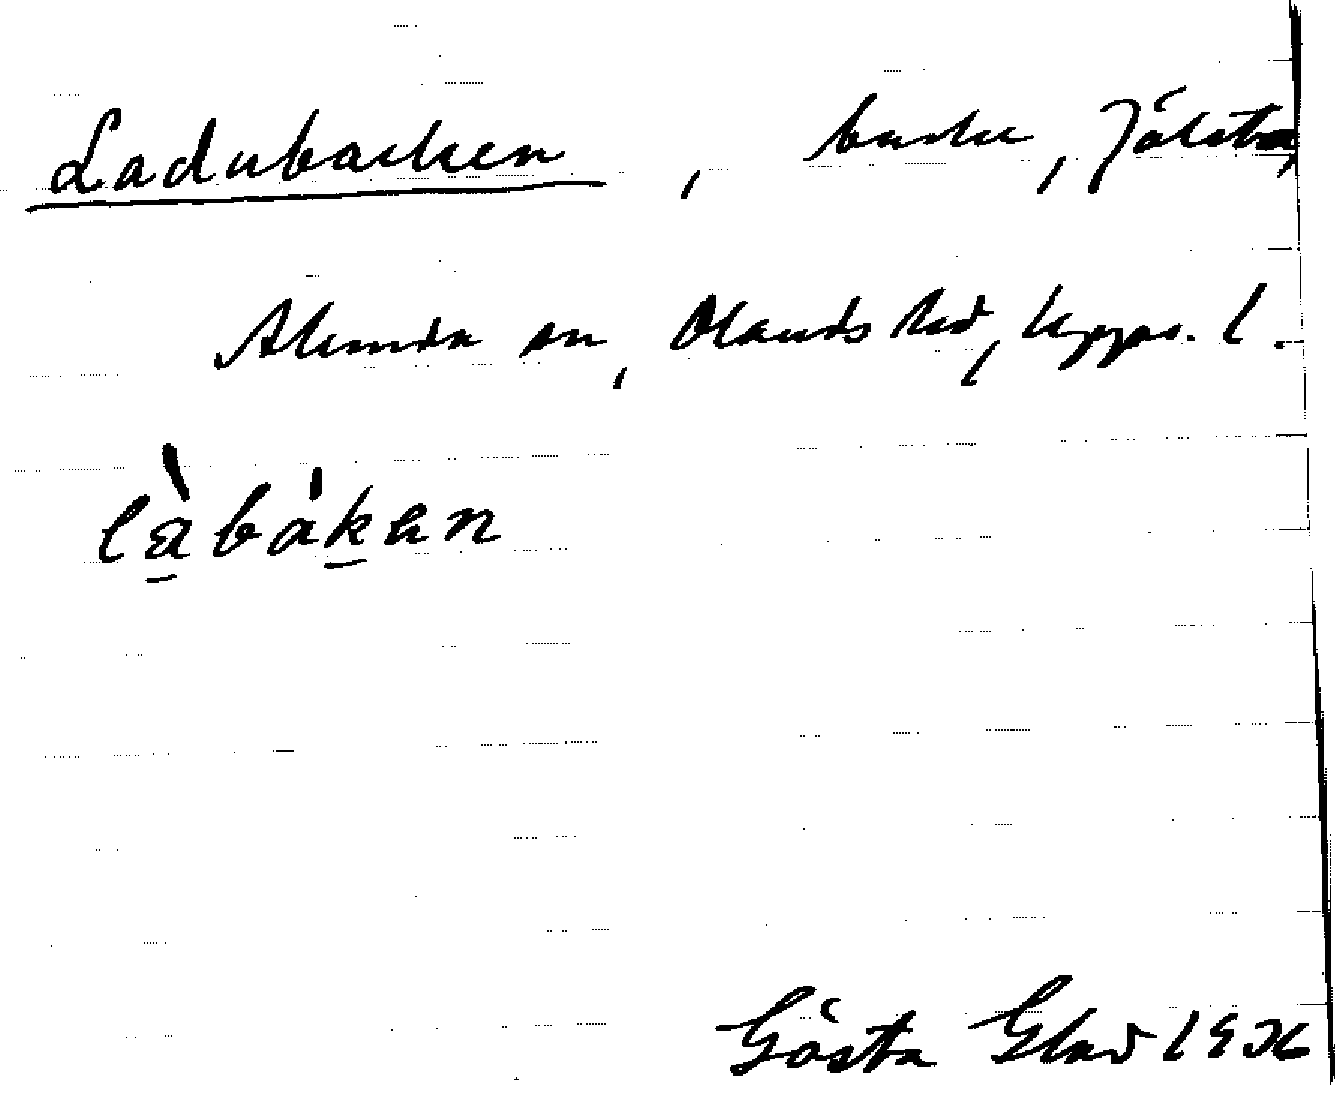 Ladubacken, backe, Jälsta,
Alunda sn, Olands hd, Upps. l.
làbàkan
Gösta Elav 1936